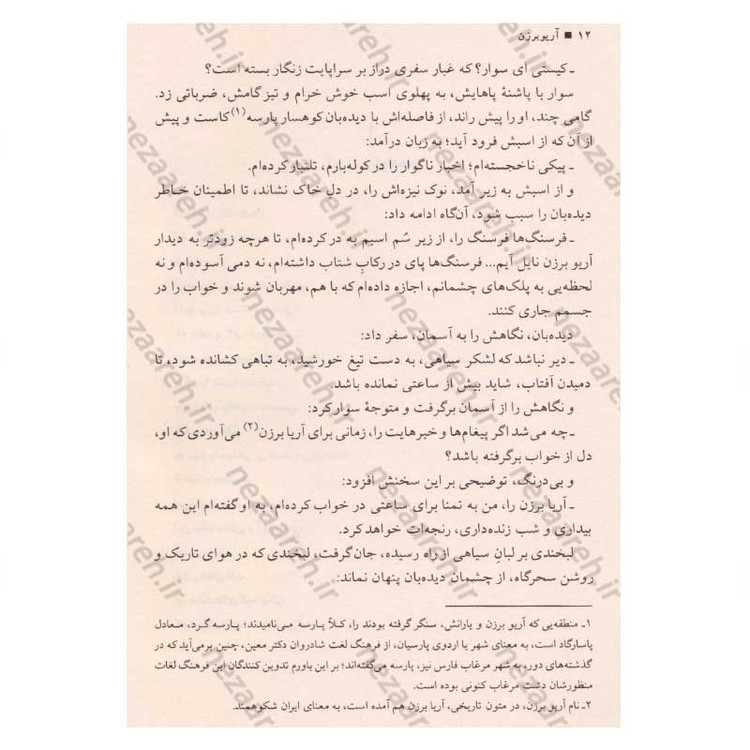 ۱۲ ■ آریوبرزن
ـ کیستی ای سوار؟ که غبار سفری دراز بر سراپایت زنگار بسته است؟
سوار با پاشنهٔ پاهایش، به پهلوی اسب خوش خرام و تیزگامش، ضرباتی زد.
گامی چند، او را پیش راند، از فاصله‌اش با دیده‌بان کوهسار پارسه(۱) کاست و پیش
از آن که از اسبش فرود آید؛ به زبان درآمد:
ـ پیکی ناخجسته‌ام؛ اخبار ناگوار را در کوله‌بارم، تلنبار کرده‌ام.
و از اسبش به زیر آمد، نوک نیزه‌اش را، در دل خاک نشاند، تا اطمینان خاطر
دیده‌بان را سبب شود، آن‌گاه ادامه داد:
ـ فرسنگ‌ها فرسنگ را، از زیر سُم اسبم به در کرده‌ام، تا هرچه زودتر به دیدار
آریو برزن نایل آیم... فرسنگ‌ها پای در رکابِ شتاب داشته‌ام، نه دمی آسوده‌ام و نه
لحظه‌یی به پلک‌های چشمانم، اجازه داده‌ام که با هم، مهربان شوند و خواب را در
جسمم جاری کنند.
دیده‌بان، نگاهش را به آسمان، سفر داد:
ـ دیر نباشد که لشکر سیاهی، به دست تیغ خورشید، به تباهی کشانده شود، تا
دمیدن آفتاب، شاید بیش از ساعتی نمانده باشد.
و نگاهش را از آسمان برگرفت و متوجهٔ سوار کرد:
ـ چه می‌شد اگر پیغام‌ها و خبرهایت را، زمانی برای آریا برزن(۲) می‌آوردی که او،
دل از خواب برگرفته باشد؟
و بی‌درنگ، توضیحی بر این سخنش افزود:
ـ آریا برزن را، من به تمنا برای ساعتی در خواب کرده‌ام، به او گفته‌ام این همه
بیداری و شب زنده‌داری، رنجه‌ات خواهد کرد.
لبخندی بر لبانِ سپاهی از راه رسیده، جان گرفت، لبخندی که در هوای تاریک و
روشن سحرگاه، از چشمان دیده‌بان پنهان نماند:
۱ـ منطقه‌یی که آریو برزن و یارانش، سنگر گرفته بودند را، کلاً پارسه می‌نامیدند؛ پارسه گرد، معادل
پاسارگاد است، به معنای شهر یا اردوی پارسیان، از فرهنگ لغت شادروان دکتر معین، چنین برمی‌آید که در
گذشته‌های دور، به شهر مرغاب فارس نیز، پارسه می‌گفته‌اند؛ بر این باورم تدوین کنندگان این فرهنگ لغات
منظورشان دشت مرغاب کنونی بوده است.
۲ـ نام آریو برزن، در متون تاریخی، آریا برزن هم آمده است، به معنای ایران شکوهمند.
nezaareh.ir